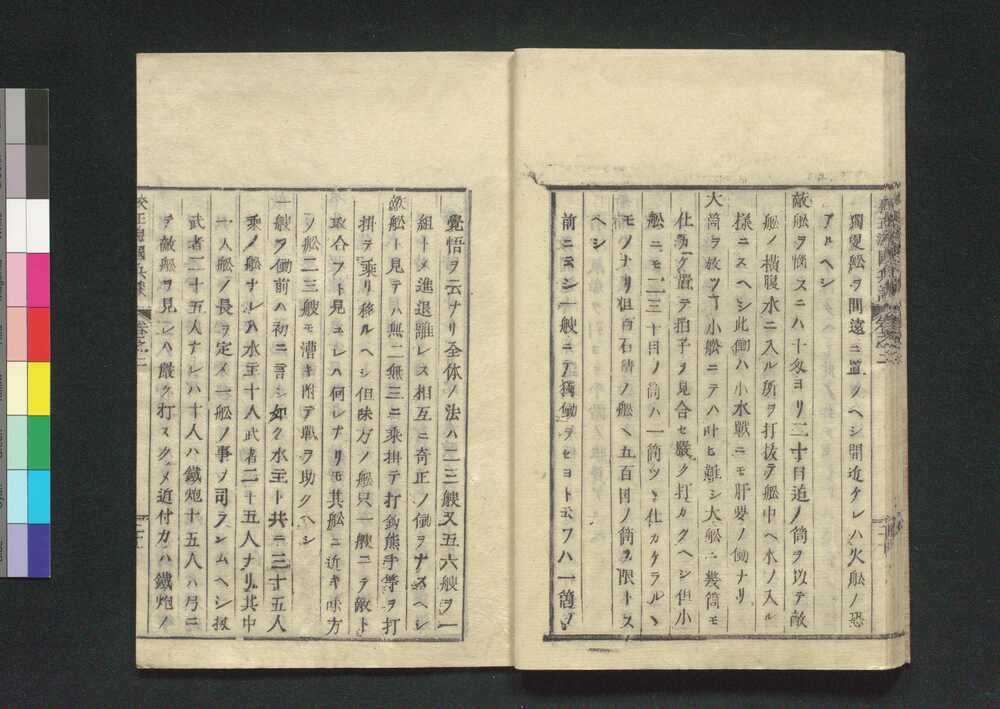 獨爰舩ヲ間遠ニ置クヘシ間近ケレハ火舩ノ恐
アルヘシ
敵舩ヲ惱スニハ十匁ヨリ二十目迫ノ筒ヲ以テ敵
舩ノ横腹水ニ入ル所ヲ打抜テ舩中ヘ水ノ入ル
様ニスヘシ此働ハ小水戰ニモ肝要ノ働ナリ
大筒ヲ放ツヿ小舩ニテハ叶ヒ難シ大舩ニ幾筒モ
仕カケ置テ拍子ヲ見合セ嚴ク打カクヘシ但小
舩ニモ二三十目ノ筒ハ一筒ツヽ仕カケラルヽ
モノナリ但百石積ノ舩ヘ五百目ノ筒ヲ限トス
ヘシ
前ニ云シ一艘ニテ獨働ヲセヨト云フハ一箇ノ
覺悟ヲ云ナリ全体ノ法ハ二三艘又五六艘ヲ一
組トメ進退離レス相互ニ奇正ノ働ヲナスヘシ
敵舩ト見テハ無二無三ニ乘掛テ打鈎熊手等ヲ打
掛テ乘リ移ルヘシ但味方ノ舩只一艘ニテ敵ト
取合フト見ユレハ何レナリモ其舩ニ近キ味方
ノ舩二三艘モ漕キ附テ戰ヲ助クヘシ
一艘ヲ働前ハ初ニ言シ如ク水主ト共ニ三十五人
乘ノ舩ナレハ水主十人武者二十五人ナリ其中
一人舩ノ長ヲ定メ一舩ノ事ヲ司ラシムヘシ扱
武者二十五人ナレハ十人ハ鐵炮十五人ハ弓ニ
テ敵舩ヲ見レハ嚴ク打スクメ近付カハ鐵炮ノ